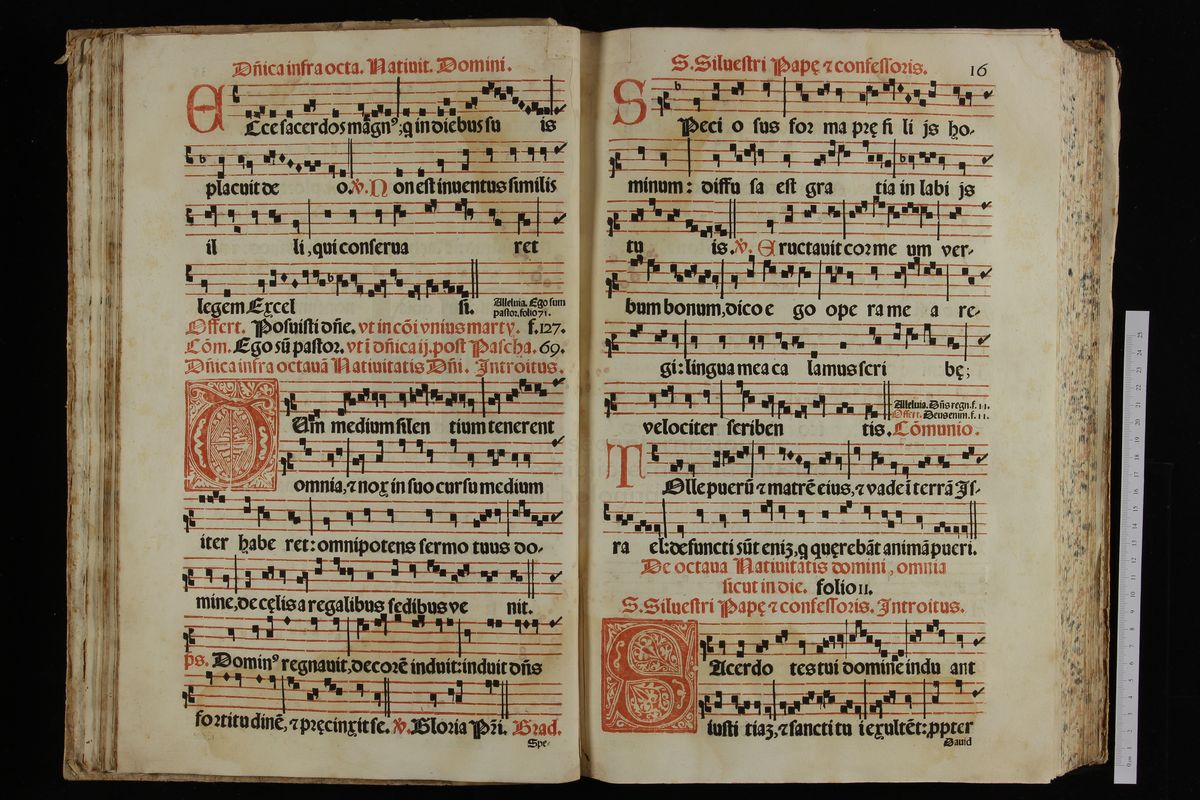 Dñica infra octa. Natiuit. Domini.
ECce sacerdos magnꝰ; q̃ in diebus su is
placuit de o. ℣. Non est inuentus similis
il li, qui conserua ret
legem Excel si. Alleluia. Ego sum
pastor, folio 71.
Offert. Posuisti dñe. vt in cõi vnius marty. f. 127.
Cõm. Ego sũ pastor. vt ĩ dñica ij. post Pascha. 69.
Dñica infra octauã Natiuitatis Dñi. Introitus.
DUm medium silen tium tenerent
omnia, ⁊ nox in suo cursu medium
iter habe ret: omnipotens sermo tuus do-
mine, de cęlis a regalibus sedibus ve nit.
ps. Dominꝰ regnauit, decorẽ induit: induit dñs
fortitudinẽ, ⁊ pręcinxit se. ℣. Gloria Pr̃i. Grad.
Spe-
S. Siluestri Papę ⁊ confessoris. 16
SPeci o sus for ma prę fi li js ho-
minum: diffu sa est gra tia in labi js
tu is. ℣. Eructauit cor me um ver-
bum bonum, dico e go ope ra me a re-
gi: lingua mea ca lamus scri bę;
velociter scriben tis. Cõmunio.
Alleluia. Dñs regn. f. 11.
Offert. Deus enim. f. 11.
TOlle puerũ ⁊ matrẽ eius, ⁊ vade ĩ terrã Is-
ra el: defuncti sũt eniȝ, q̃ quęrebãt animã pueri.
De octaua Natiuitatis domini, omnia
sicut in die. folio 11.
S. Siluestri Papę ⁊ confessoris. Introitus.
SAcerdo tes tui domine indu ant
iusti tiaȝ, ⁊ sancti tu i exultẽt: ꝓpter
Dauid